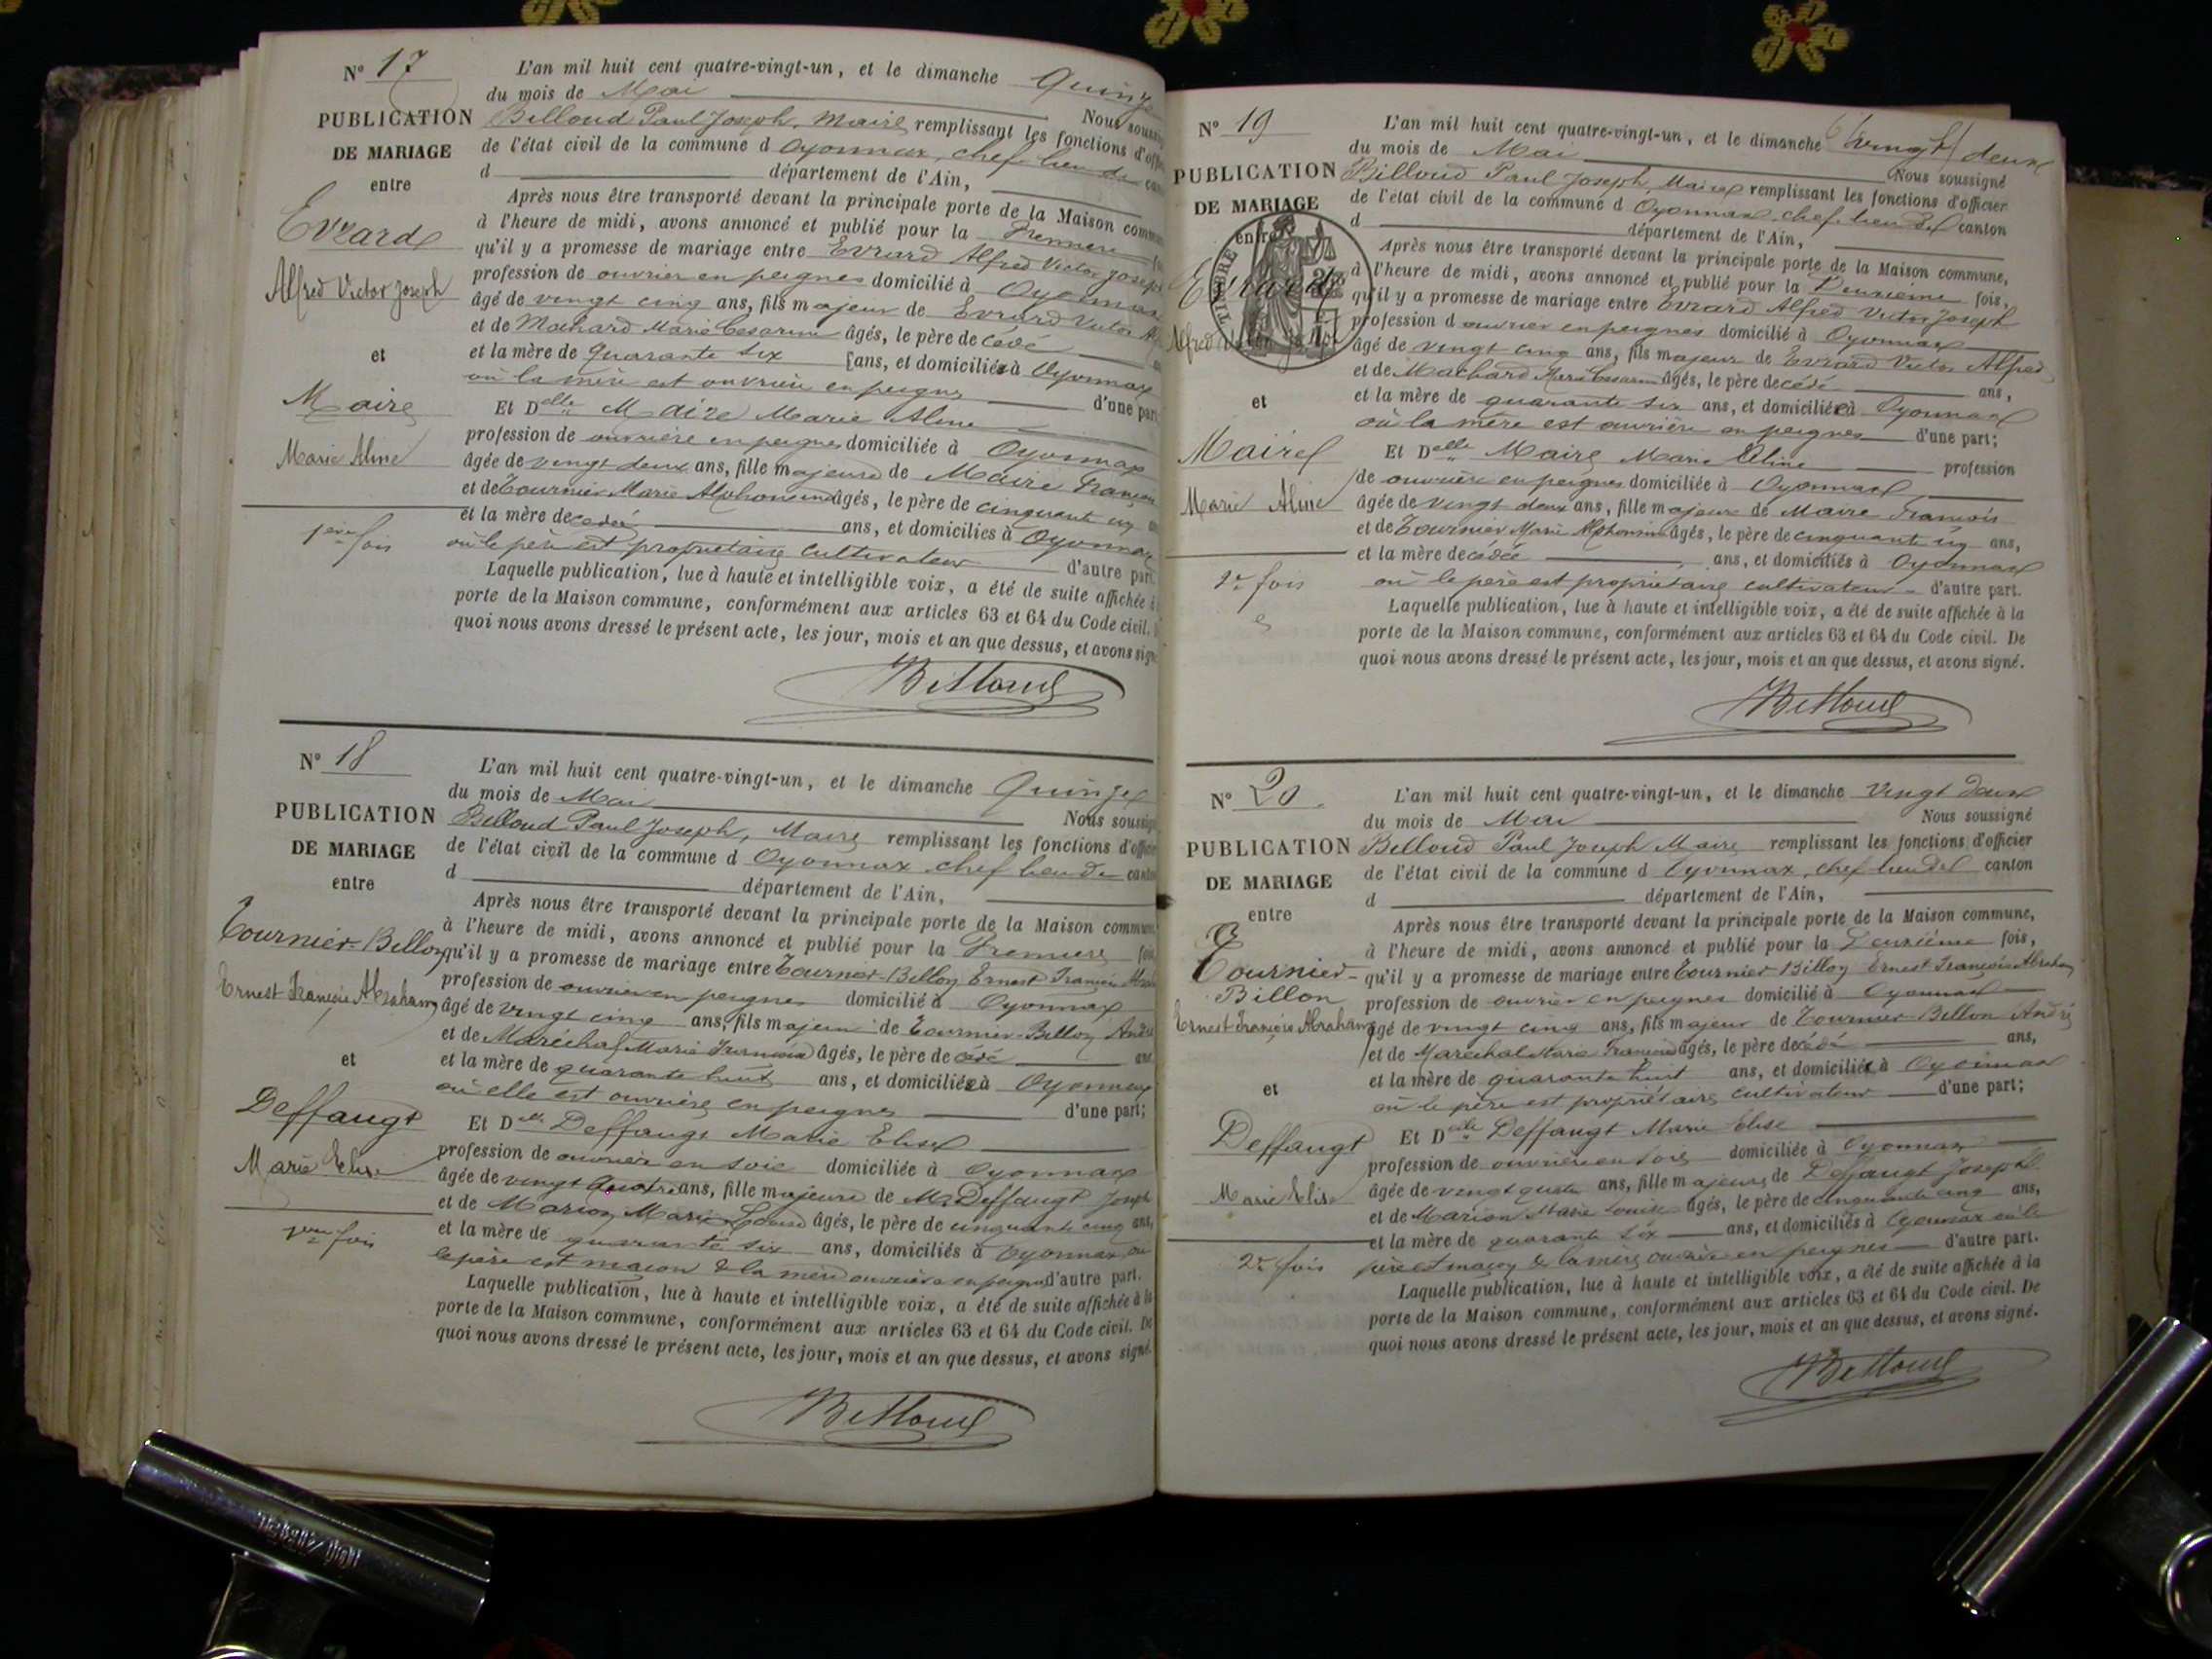 N° 17
PUBLICATION
DE MARIAGE
entre
Evrard
Alfred Victor Joseph
et
Maire
Marie Aline
1ère fois
L'an mil huit cent quatre-vingt-un, et le dimanche Quinze
du mois de Mai Nous soussig
Billoud Paul Joseph, Maire remplissant les fonctions d'offi
de l'état civil de la commune d Oyonnax, chef lieu de can
d département de l'Ain,
Après nous être transporté devant la principale porte de la Maison commun
à l'heure de midi, avons annoncé et publié pour la Première fo
qu'il y a promesse de mariage entre Evrard Alfred Victor Joseph
profession de ouvrier en peignes domicilié à Oyonnax
âgé de vingt cinq ans, fils majeur de Evrard Victor Al
et de Machard Marie Cesarine âgés, le père de cédé
et la mère de quarante six ans, et domiciliés à Oyonnax
où la mère est ouvrière en peignes d'une part
Et Delle Maire Marie Aline
profession de ouvrière en peignes domiciliée à Oyonnax
âgée de vingt deux ans, fille majeure de Maire François
et de Tournier Marie Alphonsine âgés, le père de cinquante un
et la mère de cédée ans, et domiciliés à Oyonnax
où le père est propriétaire cultivateur d'autre part.
Laquelle publication, lue à haute et intelligible voix, a été de suite affichée à
porte de la Maison commune, conformément aux articles 63 et 64 du Code civil.
quoi nous avons dressé le présent acte, les jour, mois et an que dessus, et avons sign
Billoud
N° 18
PUBLICATION
DE MARIAGE
entre
Tournier-Billon
Ernest François Abraham
et
Deffaugt
Marie Elise
1ère fois
L'an mil huit cent quatre-vingt-un, et le dimanche Quinze
du mois de Mai Nous soussig
Billoud Paul Joseph, Maire remplissant les fonctions d'officier
de l'état civil de la commune d Oyonnax chef lieu de canton
d département de l'Ain,
Après nous être transporté devant la principale porte de la Maison commun
à l'heure de midi, avons annoncé et publié pour la Première fois
qu'il y a promesse de mariage entre Tournier-Billon Ernest François Abrah
profession de ouvrier en peignes domicilié à Oyonnax
âgé de vingt cinq ans, fils majeur de Tournier-Billon André
et de Maréchal Marie Françoise âgés, le père de cédé ans
et la mère de quarante huit ans, et domiciliés à Oyonnax
où elle est ouvrière en peignes d'une part;
Et Delle Deffaugt Marie Elise
profession de ouvrière en soie domiciliée à Oyonnax
âgée de vingt quatre ans, fille majeure de M. Deffaugt Joseph
et de Marion Marie Louise âgés, le père de cinquante cinq ans,
et la mère de quarante six ans, domiciliés à Oyonnax ou
le père est maçon & la mère ouvrière en peignes d'autre part.
Laquelle publication, lue à haute et intelligible voix, a été de suite affichée à la
porte de la Maison commune, conformément aux articles 63 et 64 du Code civil. De
quoi nous avons dressé le présent acte, les jour, mois et an que dessus, et avons signé.
Billoud
N° 19
PUBLICATION
DE MARIAGE
entre
TIMBRE
Evrard
Alfred Victor Joseph
et
Maire
Marie Aline
2e fois
L'an mil huit cent quatre-vingt-un, et le dimanche vingt deux
du mois de Mai Nous soussigné
Billoud Paul Joseph, Maire remplissant les fonctions d'officier
de l'état civil de la commune d Oyonnax, chef lieu de canton
d département de l'Ain,
Après nous être transporté devant la principale porte de la Maison commune,
à l'heure de midi, avons annoncé et publié pour la Deuxième fois,
qu'il y a promesse de mariage entre Evrard Alfred Victor Joseph
profession d ouvrier en peignes domicilié à Oyonnax
âgé de vingt cinq ans, fils majeur de Evrard Victor Alfred
et de Machard Marie Cesarine âgés, le père de cédé ans,
et la mère de quarante six ans, et domiciliés à Oyonnax
où la mère est ouvrière en peignes d'une part;
Et Delle Maire Marie Aline profession
de ouvrière en peignes domiciliée à Oyonnax
âgée de vingt deux ans, fille majeure de Maire François
et de Tournier Marie Alphonsine âgés, le père de cinquante un ans,
et la mère de cédée ans, et domiciliés à Oyonnax
où le père est propriétaire cultivateur d'autre part.
Laquelle publication, lue à haute et intelligible voix, a été de suite affichée à la
porte de la Maison commune, conformément aux articles 63 et 64 du Code civil. De
quoi nous avons dressé le présent acte, les jour, mois et an que dessus, et avons signé.
Billoud
N° 20
PUBLICATION
DE MARIAGE
entre
Tournier-
Billon
Ernest François Abraham
et
Deffaugt
Marie Elise
2e fois
L'an mil huit cent quatre-vingt-un, et le dimanche vingt deux
du mois de Mai Nous soussigné
Billoud Paul Joseph Maire remplissant les fonctions d'officier
de l'état civil de la commune d Oyonnax, chef lieu de canton
d département de l'Ain,
Après nous être transporté devant la principale porte de la Maison commune,
à l'heure de midi, avons annoncé et publié pour la Deuxième fois,
qu'il y a promesse de mariage entre Tournier-Billon Ernest François Abraham
profession de ouvrier en peignes domicilié à Oyonnax
âgé de vingt cinq ans, fils majeur de Tournier-Billon André
et de Maréchal Marie Françoise âgés, le père de cédé ans,
et la mère de quarante huit ans, et domiciliés à Oyonnax
où le père est propriétaire cultivateur d'une part;
Et Delle Deffaugt Marie Elise
profession de ouvrière en soie domiciliée à Oyonnax
âgée de vingt quatre ans, fille majeure de Deffaugt Joseph
et de Marion Marie Louise âgés, le père de cinquante cinq ans,
et la mère de quarante six ans, et domiciliés à Oyonnax où le
père est maçon & la mère ouvrière en peignes d'autre part.
Laquelle publication, lue à haute et intelligible voix, a été de suite affichée à la
porte de la Maison commune, conformément aux articles 63 et 64 du Code civil. De
quoi nous avons dressé le présent acte, les jour, mois et an que dessus, et avons signé.
Billoud